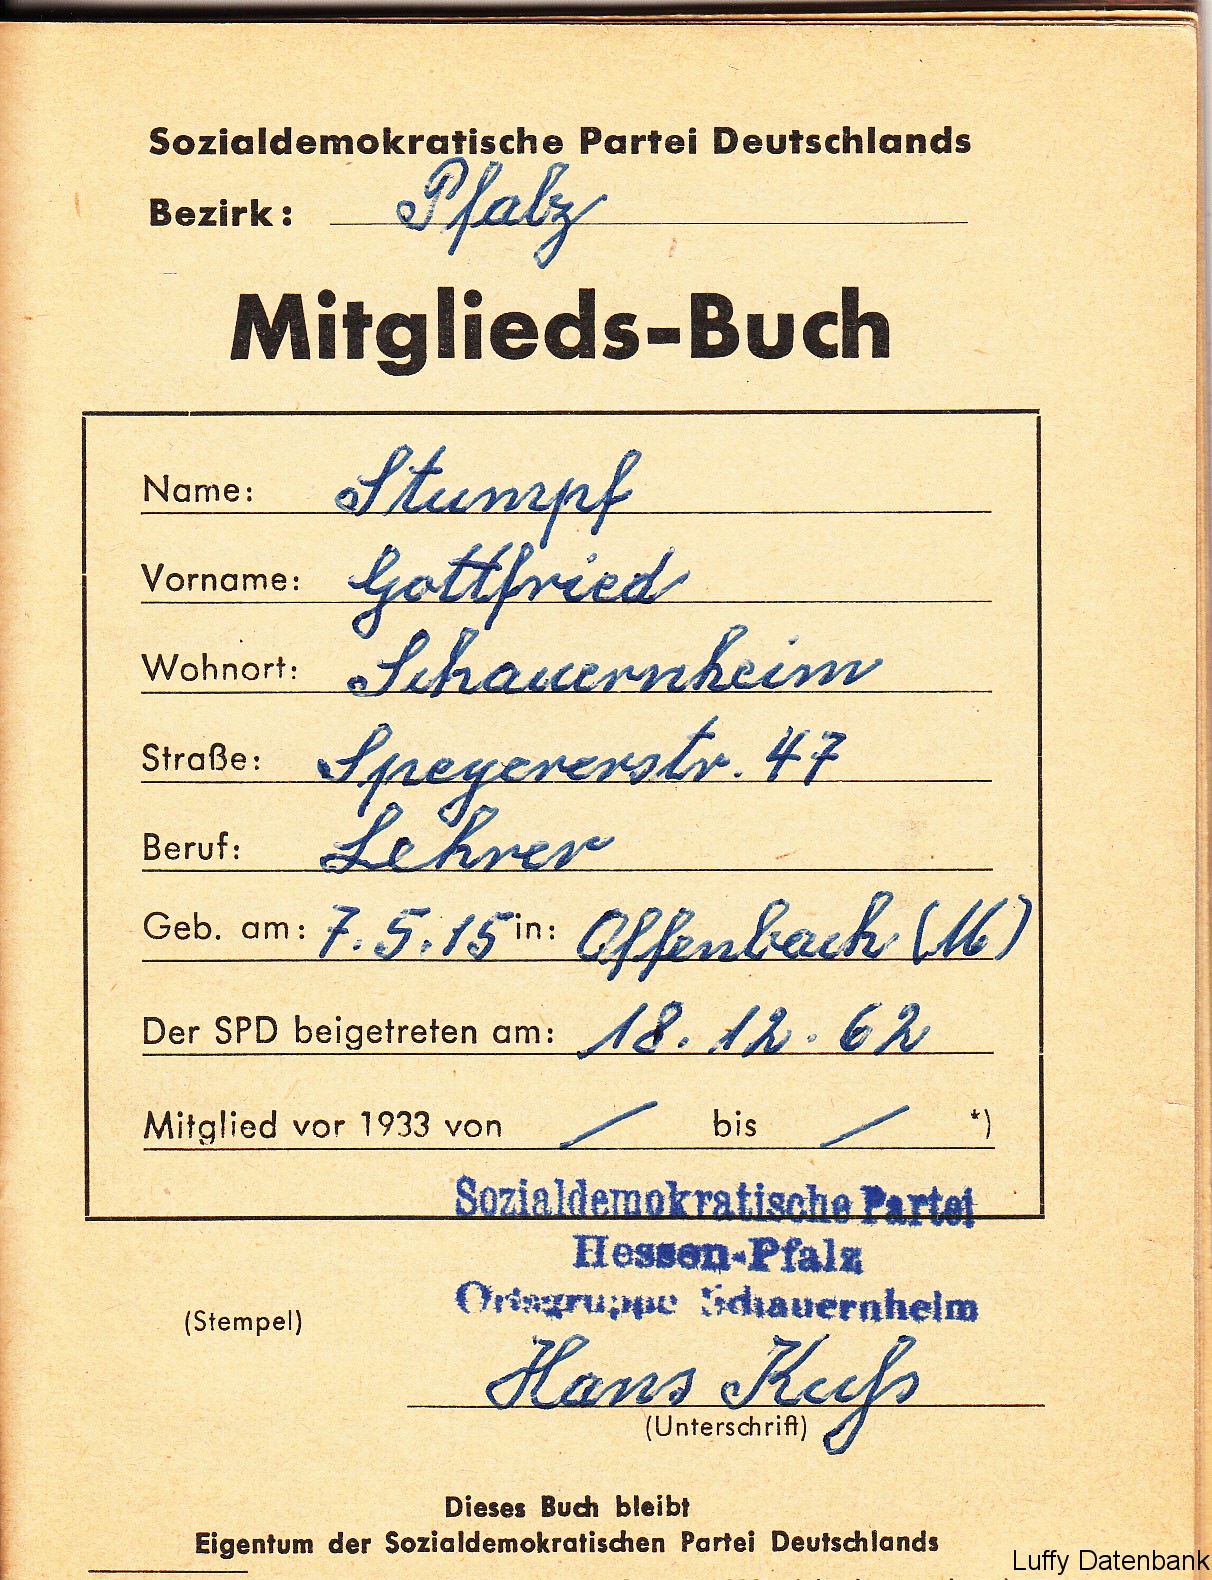 Sozialdemokratische Partei Deutschlands
Bezirk: Pfalz
Mitglieds-Buch
Name: Stumpf
Vorname: Gottfried
Wohnort: Schauernheim
Straße: Speyererstr. 47
Beruf: Lehrer
Geb. am: 7.5.15 in: Offenbach (M)
Der SPD beigetreten am: 18.12.62
Mitglied vor 1933 von / bis / *)
Sozialdemokratische Partei
Hessen-Pfalz
Ortsgruppe Schauernheim
(Stempel)
Hans Kuhs
(Unterschrift)
Dieses Buch bleibt
Eigentum der Sozialdemokratischen Partei Deutschlands
Luffy Datenbank